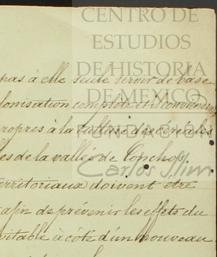 CENTRO DE
ESTUDIOS
DE HISTORIA
DE MEXICO
pas à elle seule servir de base
colonisation complète et convenu
propres à la culture des céréales
es de la vallée de Conchos.
Carlos Slim
territoriaux doivent être
afin de prévenir les effets du
vitable à côté d'un nouveau